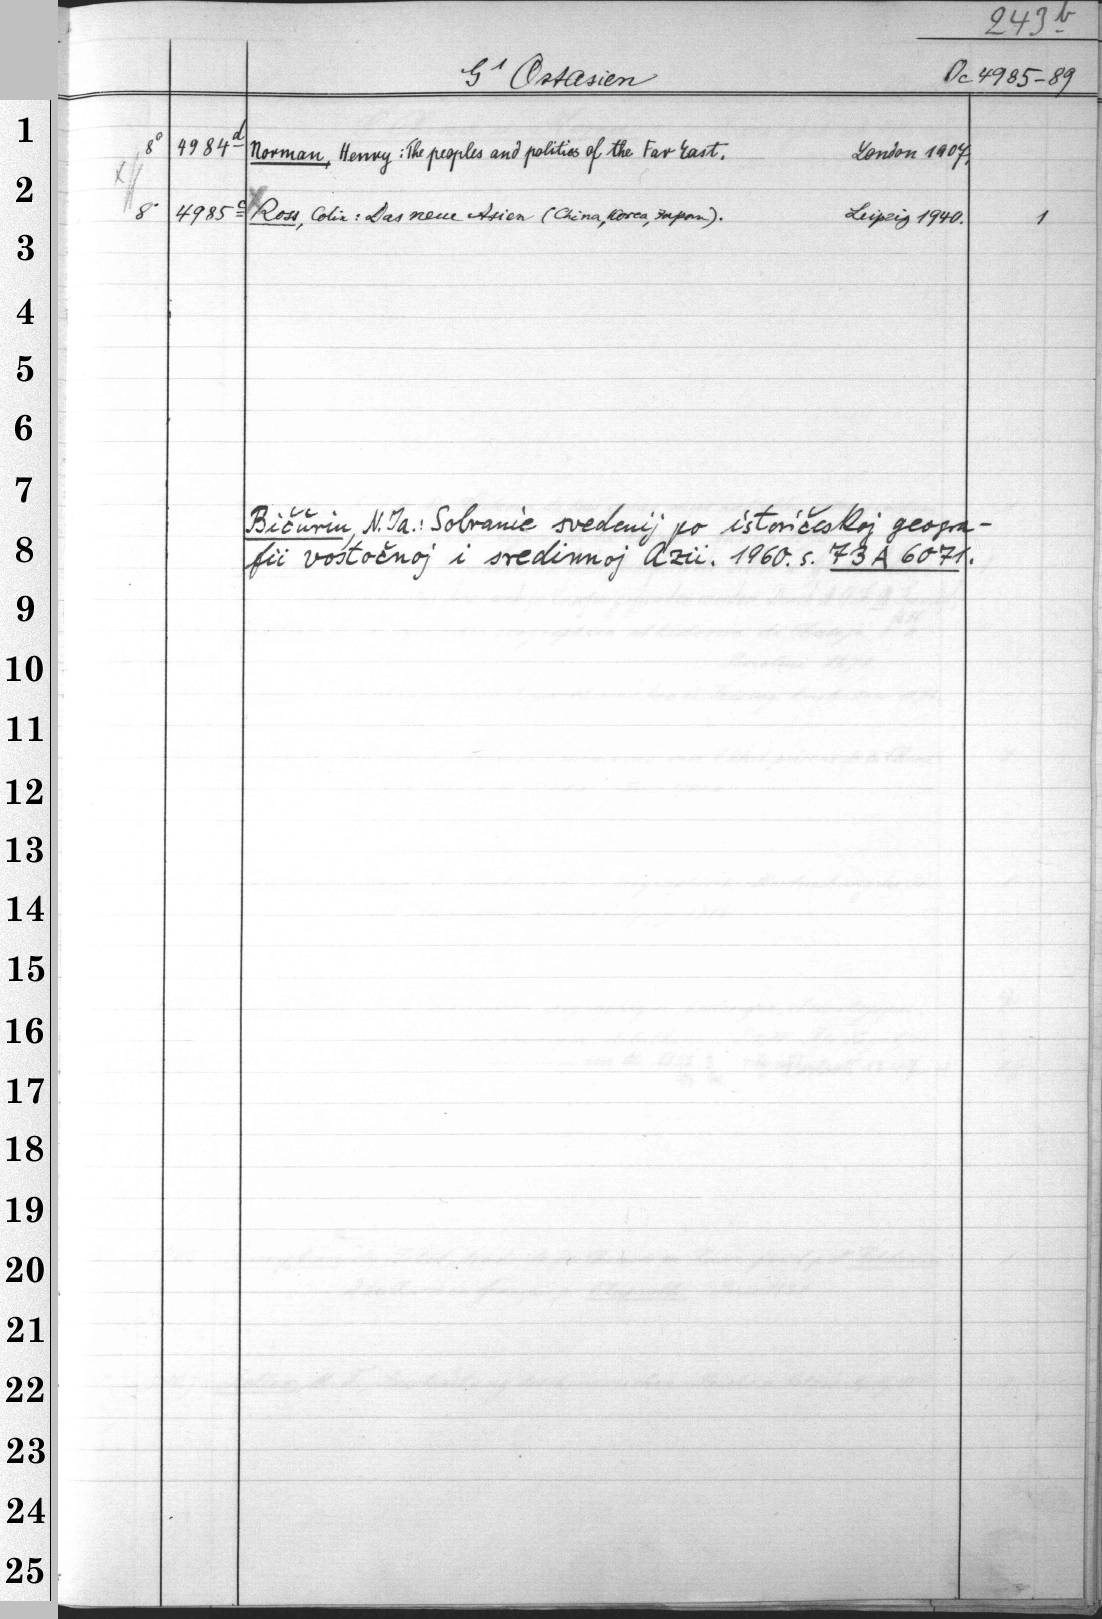 243b
G1 Ostasien
Oc 4985-89
8° 4984d Norman, Henry: The peoples and politics of the Far East. London 1907.
8° 4985c Ross, Colin: Das neue Asien (China, Korea, Japan). Leipzig 1940. 1
Bičŭrin, N. Ja.: Sobranie svedenij po istoričeskoj geogra-
fii vostočnoj i sredinnoj Azii. 1960. s. 73 A 6071.
1
2
3
4
5
6
7
8
9
10
11
12
13
14
15
16
17
18
19
20
21
22
23
24
25